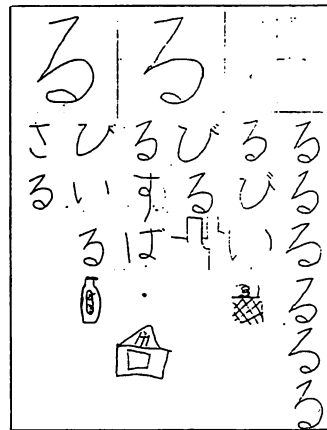 る
る
るるるるるる
るびい
びる
るすば
びいる
さる